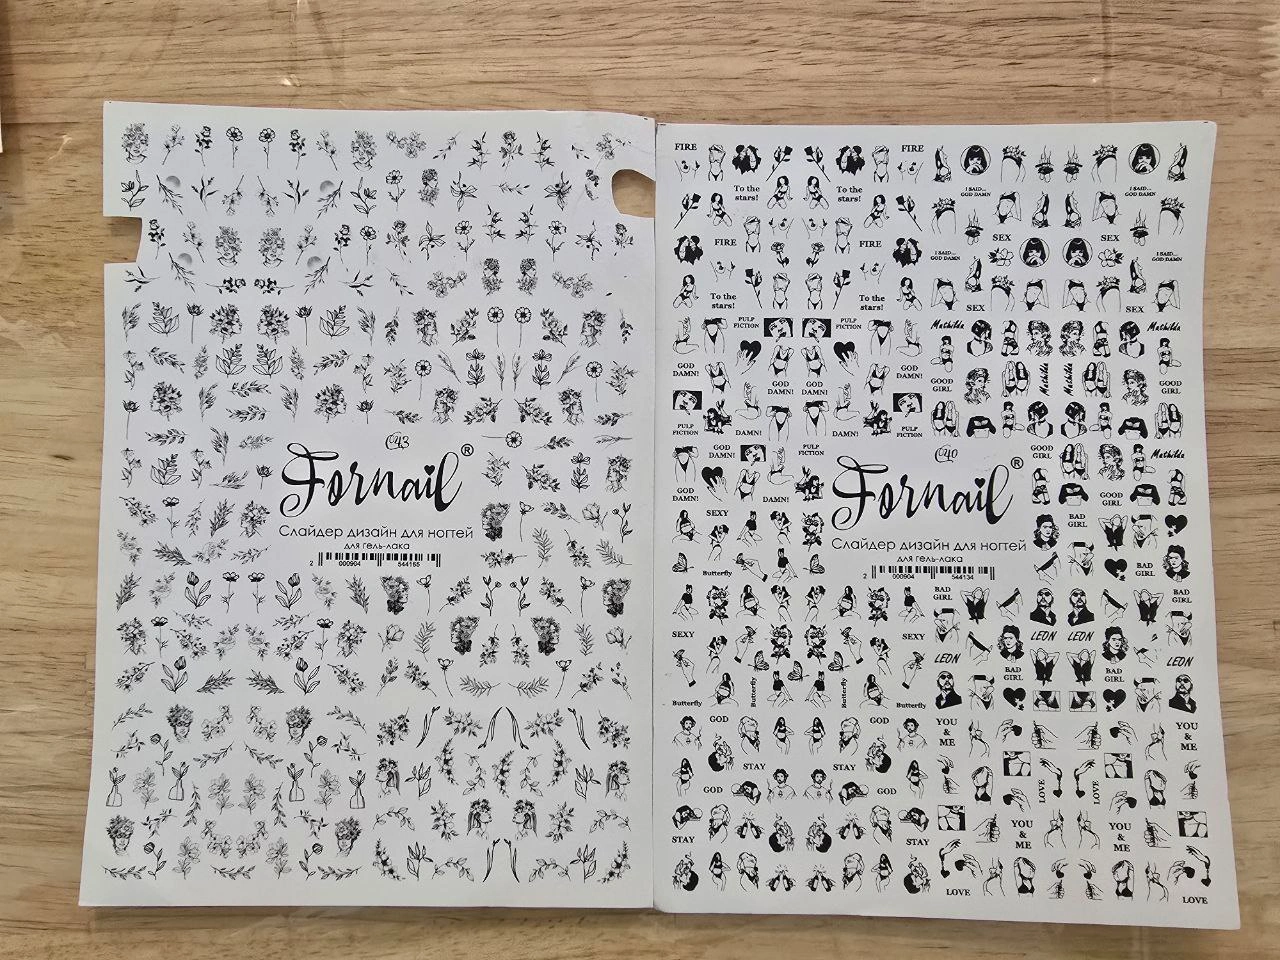 Ч43
Fornail®
Слайдер дизайн для ногтей
для гель-лака
2 000904 544165
FIRE
FIRE
To the
stars!
To the
stars!
FIRE
FIRE
To the
stars!
To the
stars!
I SAID...
GOD DAMN
I SAID...
GOD DAMN
SEX
SEX
I SAID...
GOD DAMN
I SAID...
GOD DAMN
SEX
SEX
PULP
FICTION
PULP
FICTION
GOD
DAMN!
GOD
DAMN!
GOD
DAMN!
GOD
DAMN!
PULP
FICTION
DAMN!
DAMN!
PULP
FICTION
GOD
DAMN!
PULP
FICTION
GOD
DAMN!
DAMN!
Mathilda
Mathilda
GOOD
GIRL
Mathilda
Mathilda
GOOD
GIRL
GOOD
GIRL
Mathilda
GOOD
GIRL
Ч40
Fornail®
Слайдер дизайн для ногтей
для гель-лака
2 000904 544134
SEXY
Butterfly
BAD
GIRL
BAD
GIRL
SEXY
SEXY
Butterfly
Butterfly
Butterfly
Butterfly
BAD
GIRL
BAD
GIRL
LEON
LEON
LEON
LEON
BAD
GIRL
BAD
GIRL
GOD
GOD
STAY
STAY
GOD
GOD
STAY
STAY
YOU
&
ME
YOU
&
ME
LOVE
LOVE
YOU
&
ME
YOU
&
ME
LOVE
LOVE